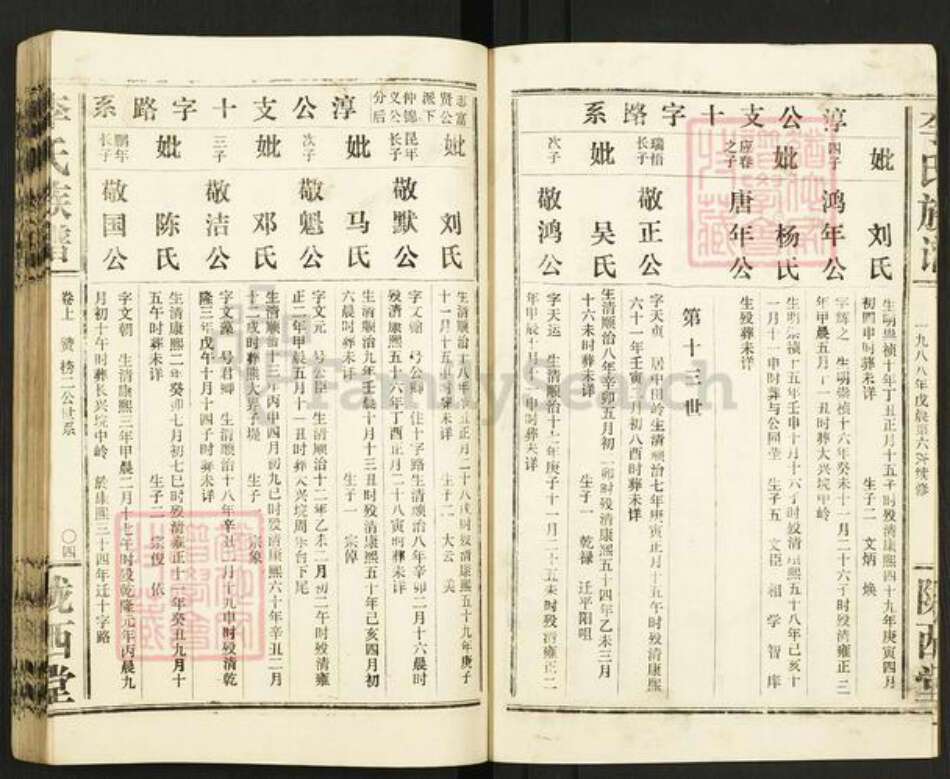 李氏族谱
一九八八年戊辰第六次续修
陇西堂
淳公支十字路系
妣 刘氏
生明崇祯十年丁丑正月十五子时殁清康熙四十九年庚寅四月
初四申时葬未详 生子二 文炳 焕
四子 鸿年公
字辉之 生明崇祯十六年癸未十一月二十六子时殁清雍正三
年甲辰五月十一丑时葬大兴垸中岭
妣 杨氏
生明崇祯十五年壬申十月十六子时殁清康熙五十八年己亥十
一月十一申时葬与公同茔 生子五 文臣 相 学 智 库
应春之子 唐年公
生殁葬未详
第十三世
瑞悟长子 敬正公
字天贞 居中南岭生清顺治七年庚寅正月十五午时殁清康熙
六十一年壬寅 月初八酉时葬未详
妣 吴氏
生清顺治八年辛卯五月初 卯时殁清康熙五十四年乙未三月
十六未时葬未详 生子一 乾禄 迁平阳咀
次子 敬鸿公
字天运 生清顺治十七年庚子十一月二十五未时殁清雍正二
年甲辰七月十一申时葬未详
志富贤公派下仲锦义公分后
淳公支十字路系
妣 刘氏
生清顺治十八年辛丑正月二十八戌时殁清康熙五十九年庚子
十一月十五申时葬未详 生子二 大云 美
昆年长子 敬默公
字文翰 号公卿 住十字路生清顺治八年辛卯二月十六辰时
殁清康熙五十六年丁酉正月二十八寅时葬未详
妣 马氏
生清顺治九年壬辰十月十三丑时殁清康熙五十年己亥四月初
六辰时葬未详 生子一 宗悼
次子 敬魁公
字文元 号公臣 生清顺治十二年乙未二月初二午时殁清雍
正二年甲辰五月十一丑时葬大兴垸周朱台下尾
妣 邓氏
生清顺治十三年丙申四月初九巳时殁清康熙六十年辛丑二月
十二戌时葬熊大男子堤 生子一 宗象
三子 敬洁公
字文藻 号君卿 生清顺治十八年辛丑 月十九申时殁清乾
隆三年戊午十月十四子时葬未详
妣 陈氏
生清康熙二年癸卯七月初七巳时殁清雍正十一年癸丑九月十
五午时葬未详 生子二 宗俊 依
鹏年长子 敬国公
字文朝 生清康熙三年甲辰二月十七午时殁乾隆元年丙辰九
月初十午时葬长兴垸中岭 于康熙三十四年迁十字路
李氏族谱
卷上
〇四
陇西堂
FamilySearch